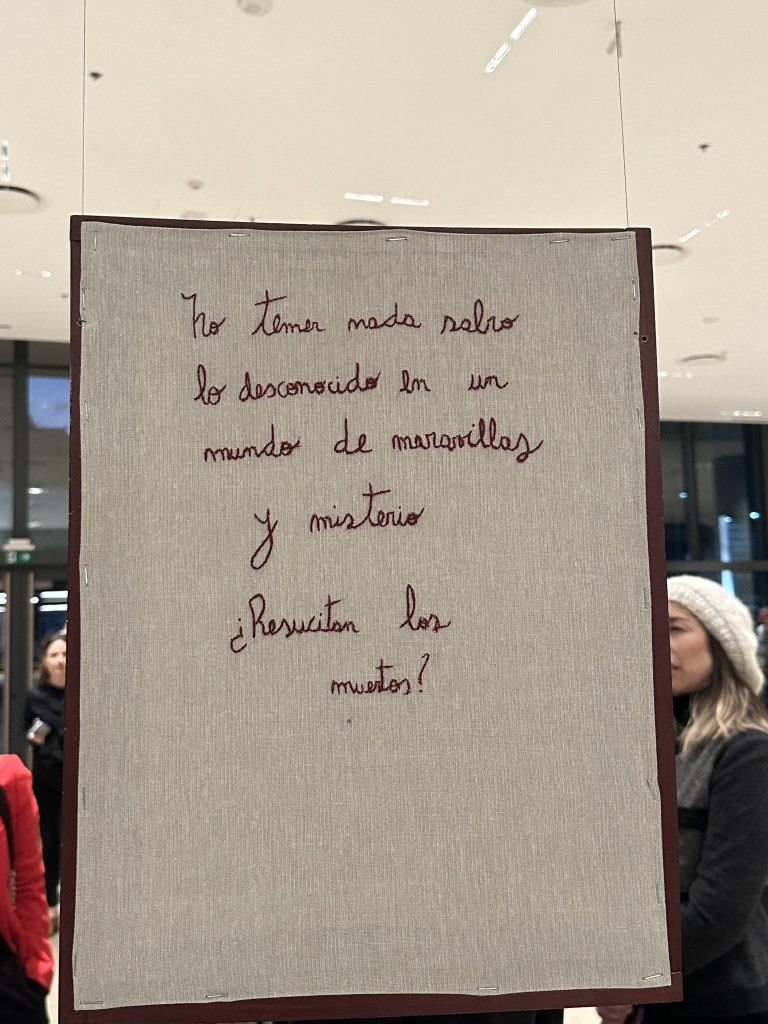 No temer nada salvo
lo desconocido en un
mundo de maravillas
y misterio
¿Resucitan los
muertos?